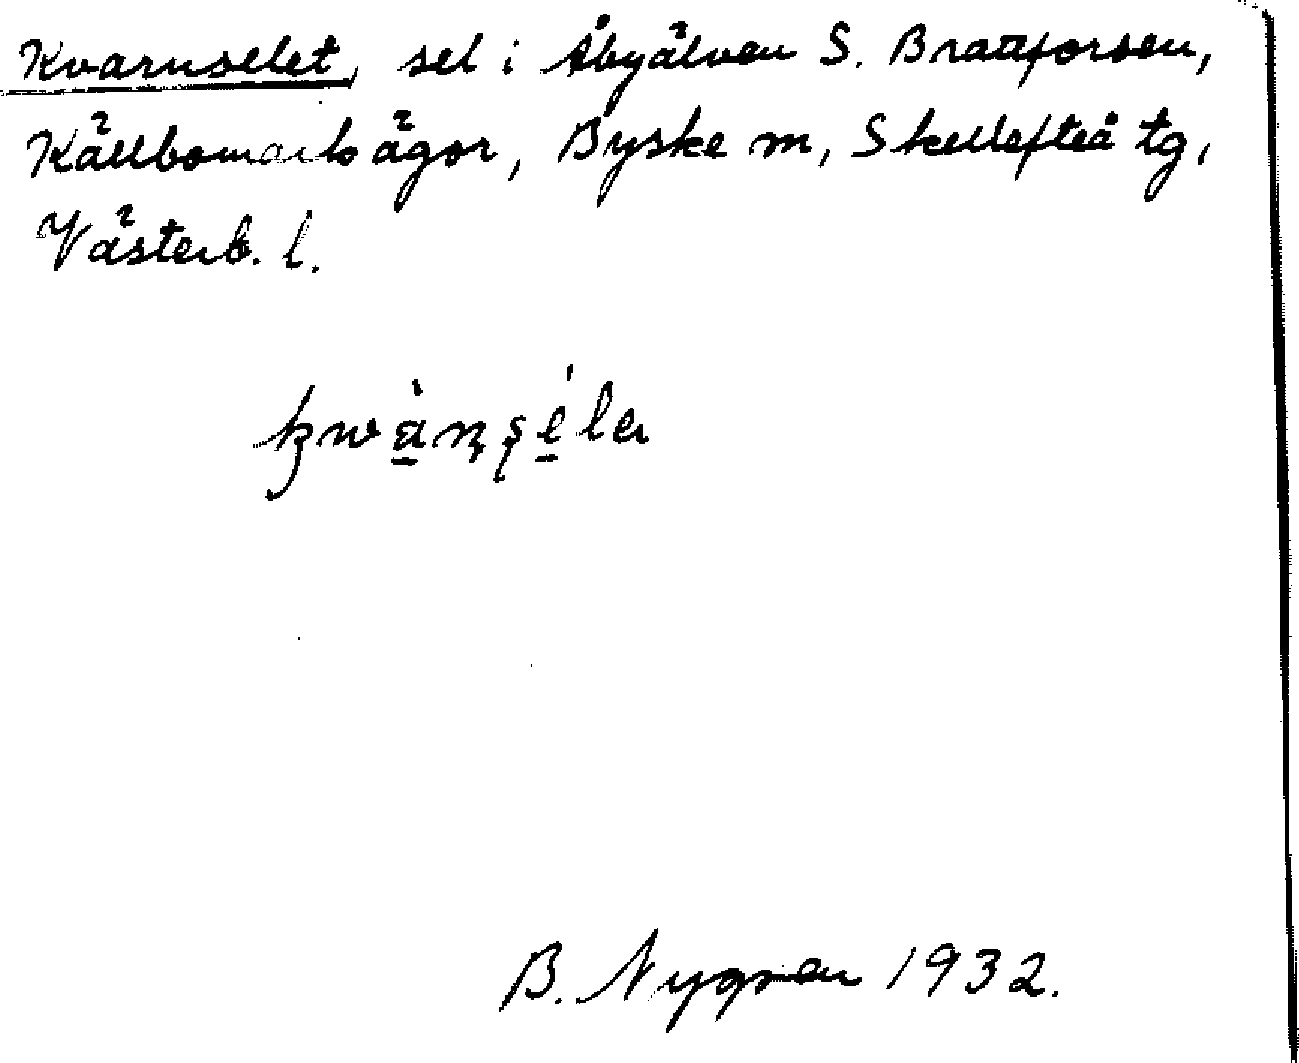 Kvarnselet, sel i Åbyälven S. Brattforsen,
Källbomark ägor, Byske sn, Skellefteå tg,
Västerb. l.
B. Nygren 1932.